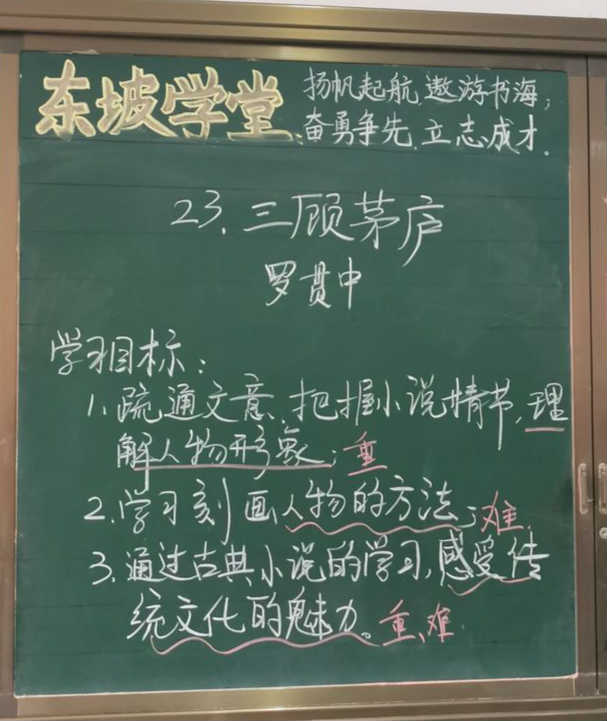 东坡学堂
扬帆起航 遨游书海;
奋勇争先,立志成才.
23.三顾茅庐
罗贯中
学习目标:
1.疏通文意、把握小说情节,理
解人物形象;重
2.学习刻画人物的方法;难.
3.通过古典小说的学习,感受传
统文化的魅力。重、难.